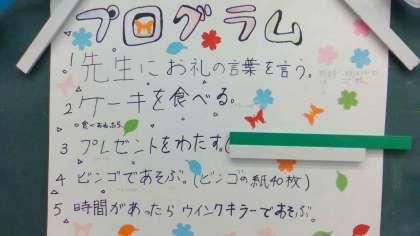 プログラム
1 先生にお礼の言葉を言う。
2 ケーキを食べる。
3 プレゼントをわたす。(
4 ビンゴであそぶ。(ビンゴの紙40枚)
5 時間があったらウインクキラーであそぶ。